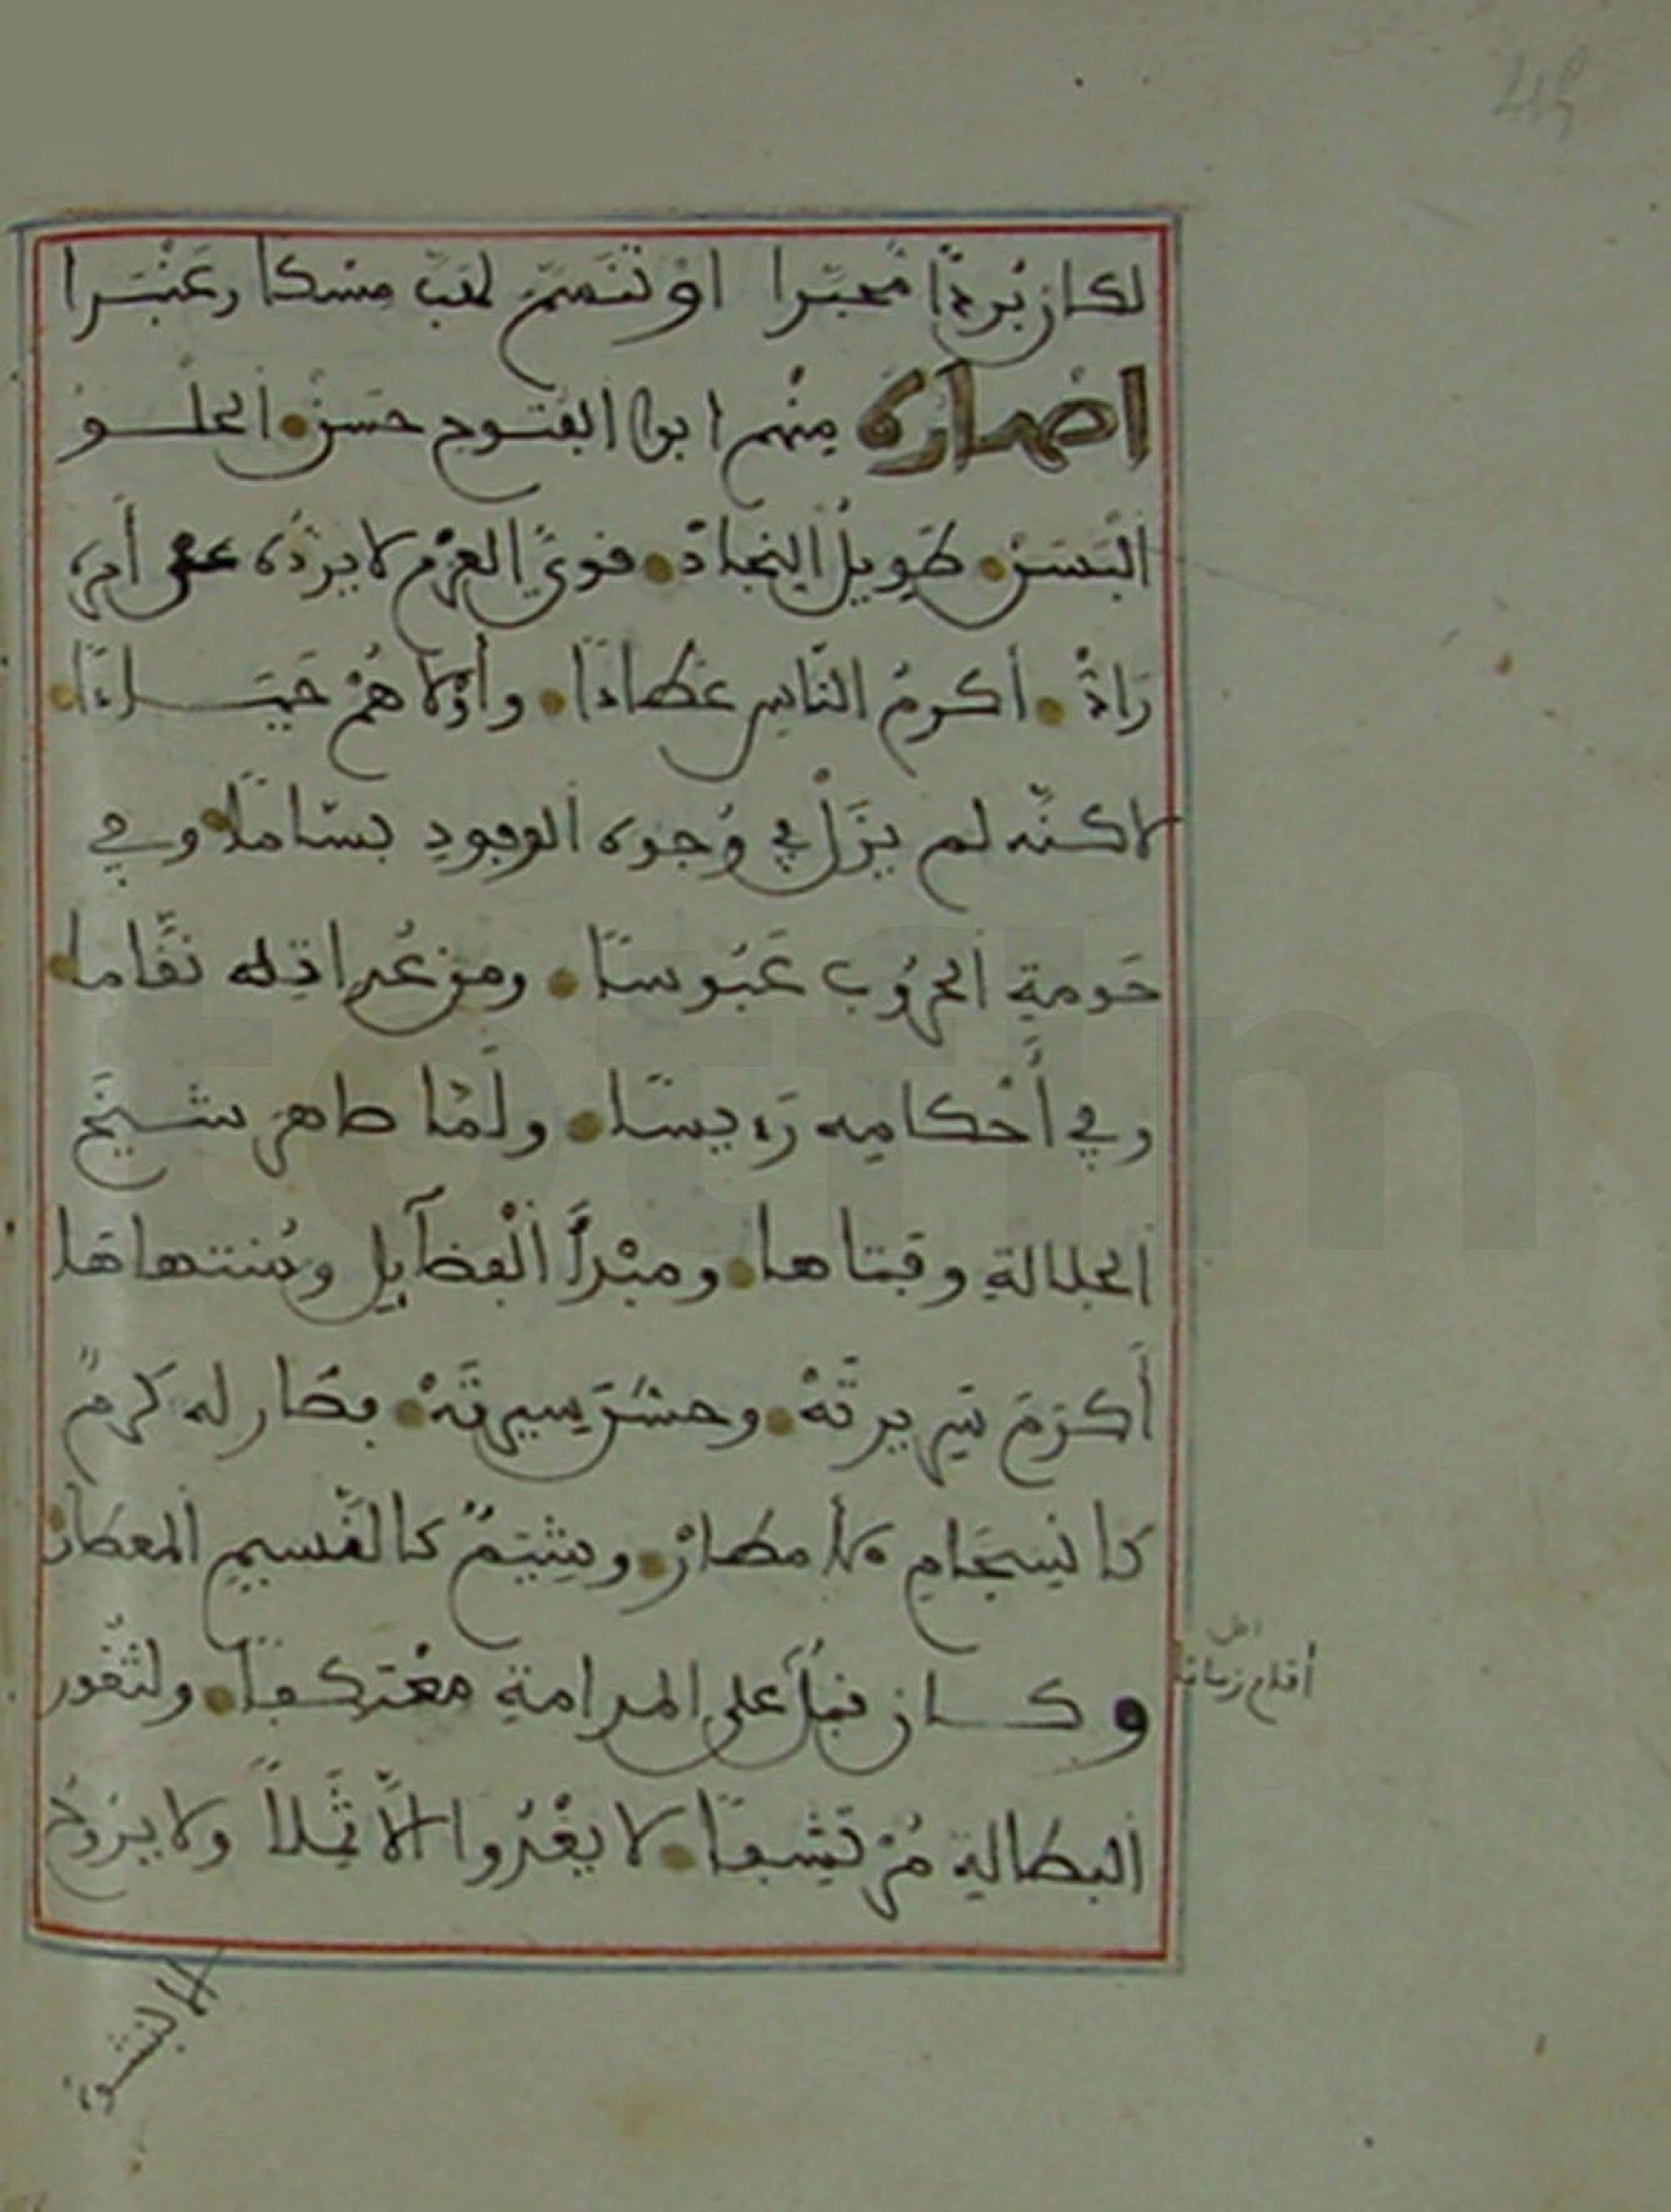 لكان بُردًا مُحبَّرا او تنسّم لهبّ مسكا وعَنْبَرا
اصهاره منهم ابوا الفتوح حسن الحلو
اللَّسَن طويل النجاد قوي العزم لا يردّه عن أمره
رَادّ أكرمُ الناسِ عَطاءًا وأوْلاهُمْ حَيَاءًا
لاكنّه لم يزَلْ في وُجوه الوجودِ بسّامَا وفي
حَومةِ الحروب عَبُوسًا ومن عُداتِه نقَّاما
وفي أَحْكامِه رَءيسًا ولَمّا طاهر شيخ
الجلالة وفتاها ومبْدَأ الفضآيل ومُنتهاها
أكرَمَ سَريرتَهْ وحسّنَ سيرتَهْ فصار له كرمٌ
كانسِجَامِ الأمطارْ وشِيَمٌ كالنّسيمِ المعطارْ
وكان قبلُ على المدامةِ معْتكفًا ولثغور
البطالةِ مُرتشفًا لا يغْدُوا الاّ ثَمِلاً ولا يروح
أهل
أفلح زمانه
الا بنشوة